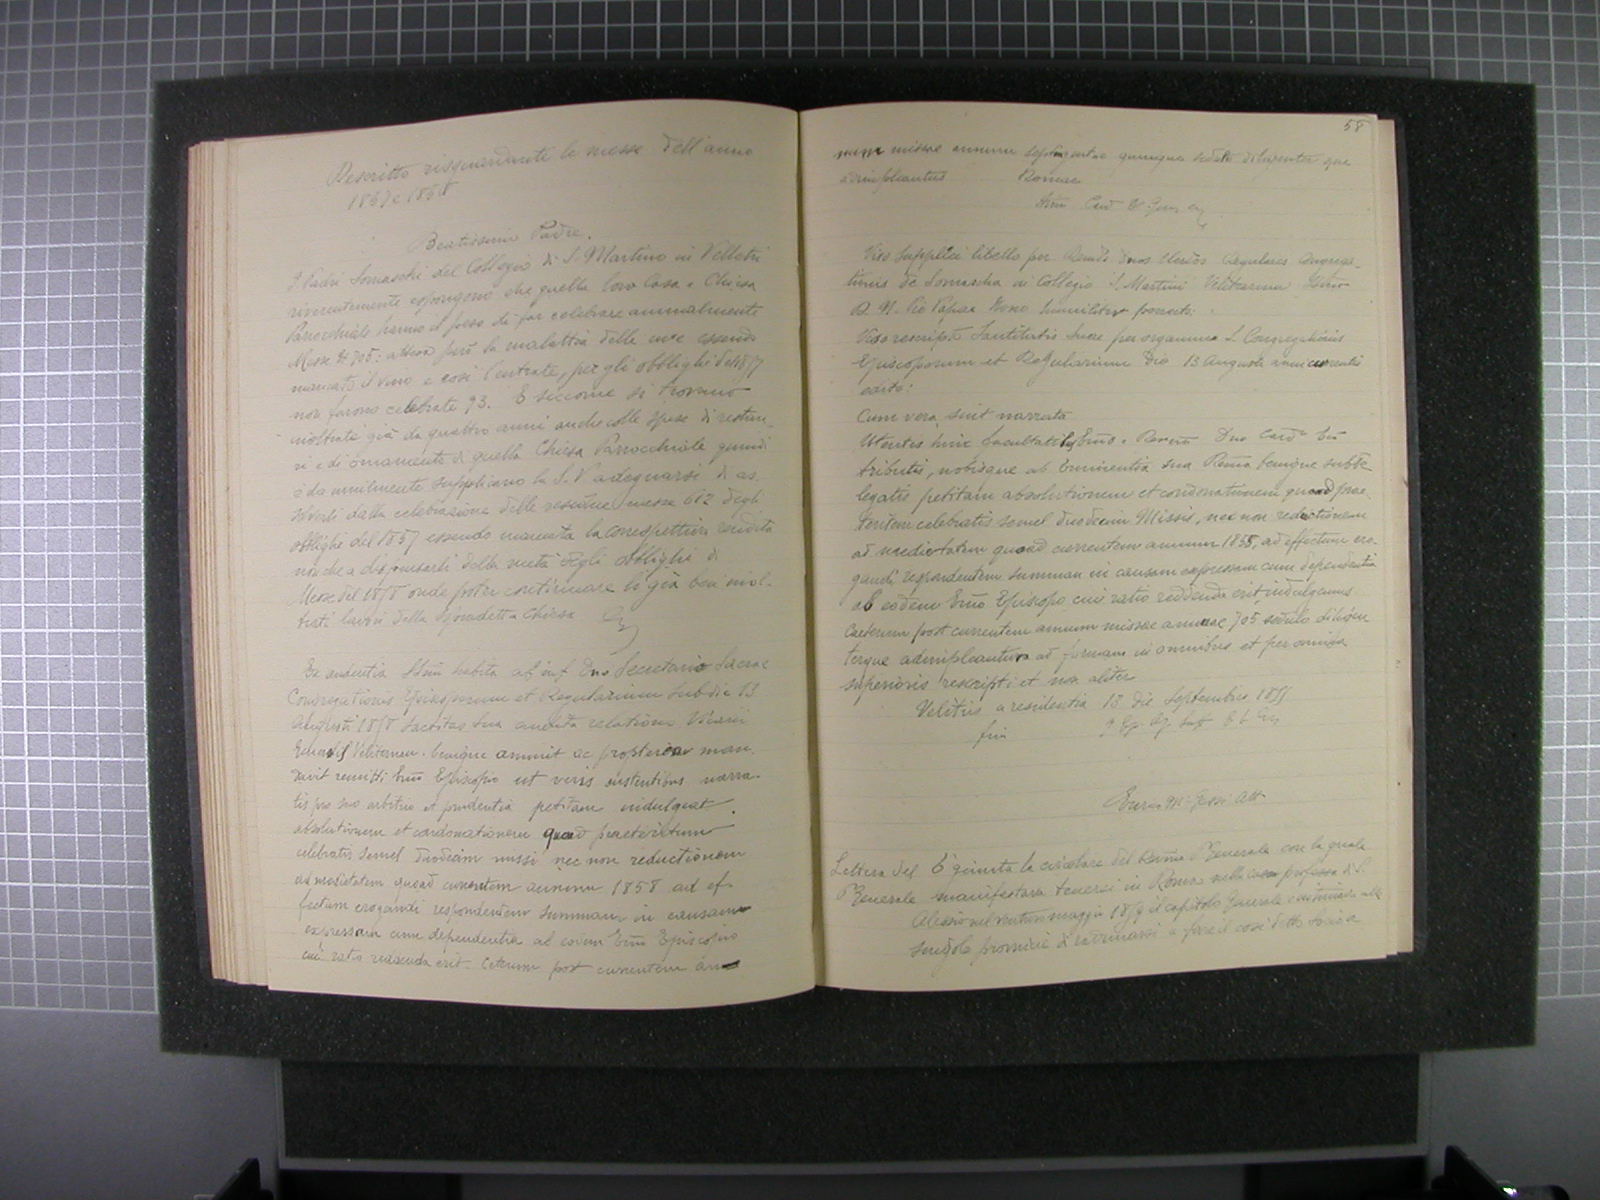 Rescritto risguardante le messe dell'anno
1857 e 1858
Beatissimo Padre.
I Padri Somaschi del Collegio di S. Martino in Velletri
riverentemente espongono che quella loro Casa e Chiesa
Parocchiale hanno il peso di far celebrare annualmente
Messe N 705: attesa però la malattia delle uve essendo
mancato il vino e così l'entrate, per gli obblighi del 1857
non furono celebrate 93. E siccome si trovano
inoltrati già da quattro anni anche colle spese di restau-
ri e di ornamenti di quella Chiesa Parocchiale quindi
è da umilmente supplicano la S. V. adegnarsi di as-
solverli dalla celebrazione delle residue messe 612 degli
obblighi del 1857 essendo mancata la corrispettiva rendita
nonche a dispensarli della metà degli obblighi di
Messe del 1858 onde poter continuare li già ben inol-
trati lavori della sponedetta Chiesa
Ex audientia SSmi habita ab inf. Dno Secretario Sacrae
Congregationis Episcoporum et Regularium sub die 13
Augusti 1858 Sanctitas Sua audita relatione Vicarii
Veliternen. benigne annuit ac propterea man-
davit remitti Emo Episcopo ut veris existentibus narra-
tis pro suo arbitrio et prudentia petitam indulgeat
absolutionem et condonationem quoad praeteritum
celebratis semel duodecim missi nec non reductionem
ad medietatem quoad currentem annum 1858 ad ef-
fectum erogandi respondentem summam in causam
expressam cum dependentia ab eodem Emo Episcopo
cui ratio reddenda erit. Ceterum post currentem an
58
num missae annum septingentae quinque sedulo diligenter que
adimpleantur Romae
Viso supplici libello per Rendos Dnos Clericos Regulares Congrega-
tionis de Somascha in Collegio S. Martini Velitrarum SSmo
D. N. Pio Papae Nono humiliter porrecto:
Viso rescripto Sanctitatis Suae per organum S. Congregationis
Episcoporum et Regularium Die 13 Augusti anni currentis
edito:
Cum vera sint narrata
Utentes hinc facultatibus Emo. Revmo Dno Card.
tributis, nobisque ab Eminentia sua Rma benigne subde-
legatis petitam absolutionem et condonationem quoad prae-
teritum celebratis semel duodecim Missis, nec non reductionem
ad medietatem quoad currentem annum 1858, ad effectum ero-
gandi respondentem summam in causam expressam cum dependentia
ab eodem Emo Episcopo cui ratio reddenda erit, indulgemus
Caeterum post currentem annum missae annuae 705 sedulo diligen
terque adimpleantur ad formam in omnibus et per omnia
superioris rescripti et non aliter
Velitris a residentia 18 die Septembre 1858
Lettera del E' giunta la circolare del Revmo P. Generale con la quale
P. Generale manifestava tenersi in Roma nella casa professa di S.
Alessio nel venturo maggio 1859 il capitolo Generale
singole provincie di radunarsi e fare il così detto